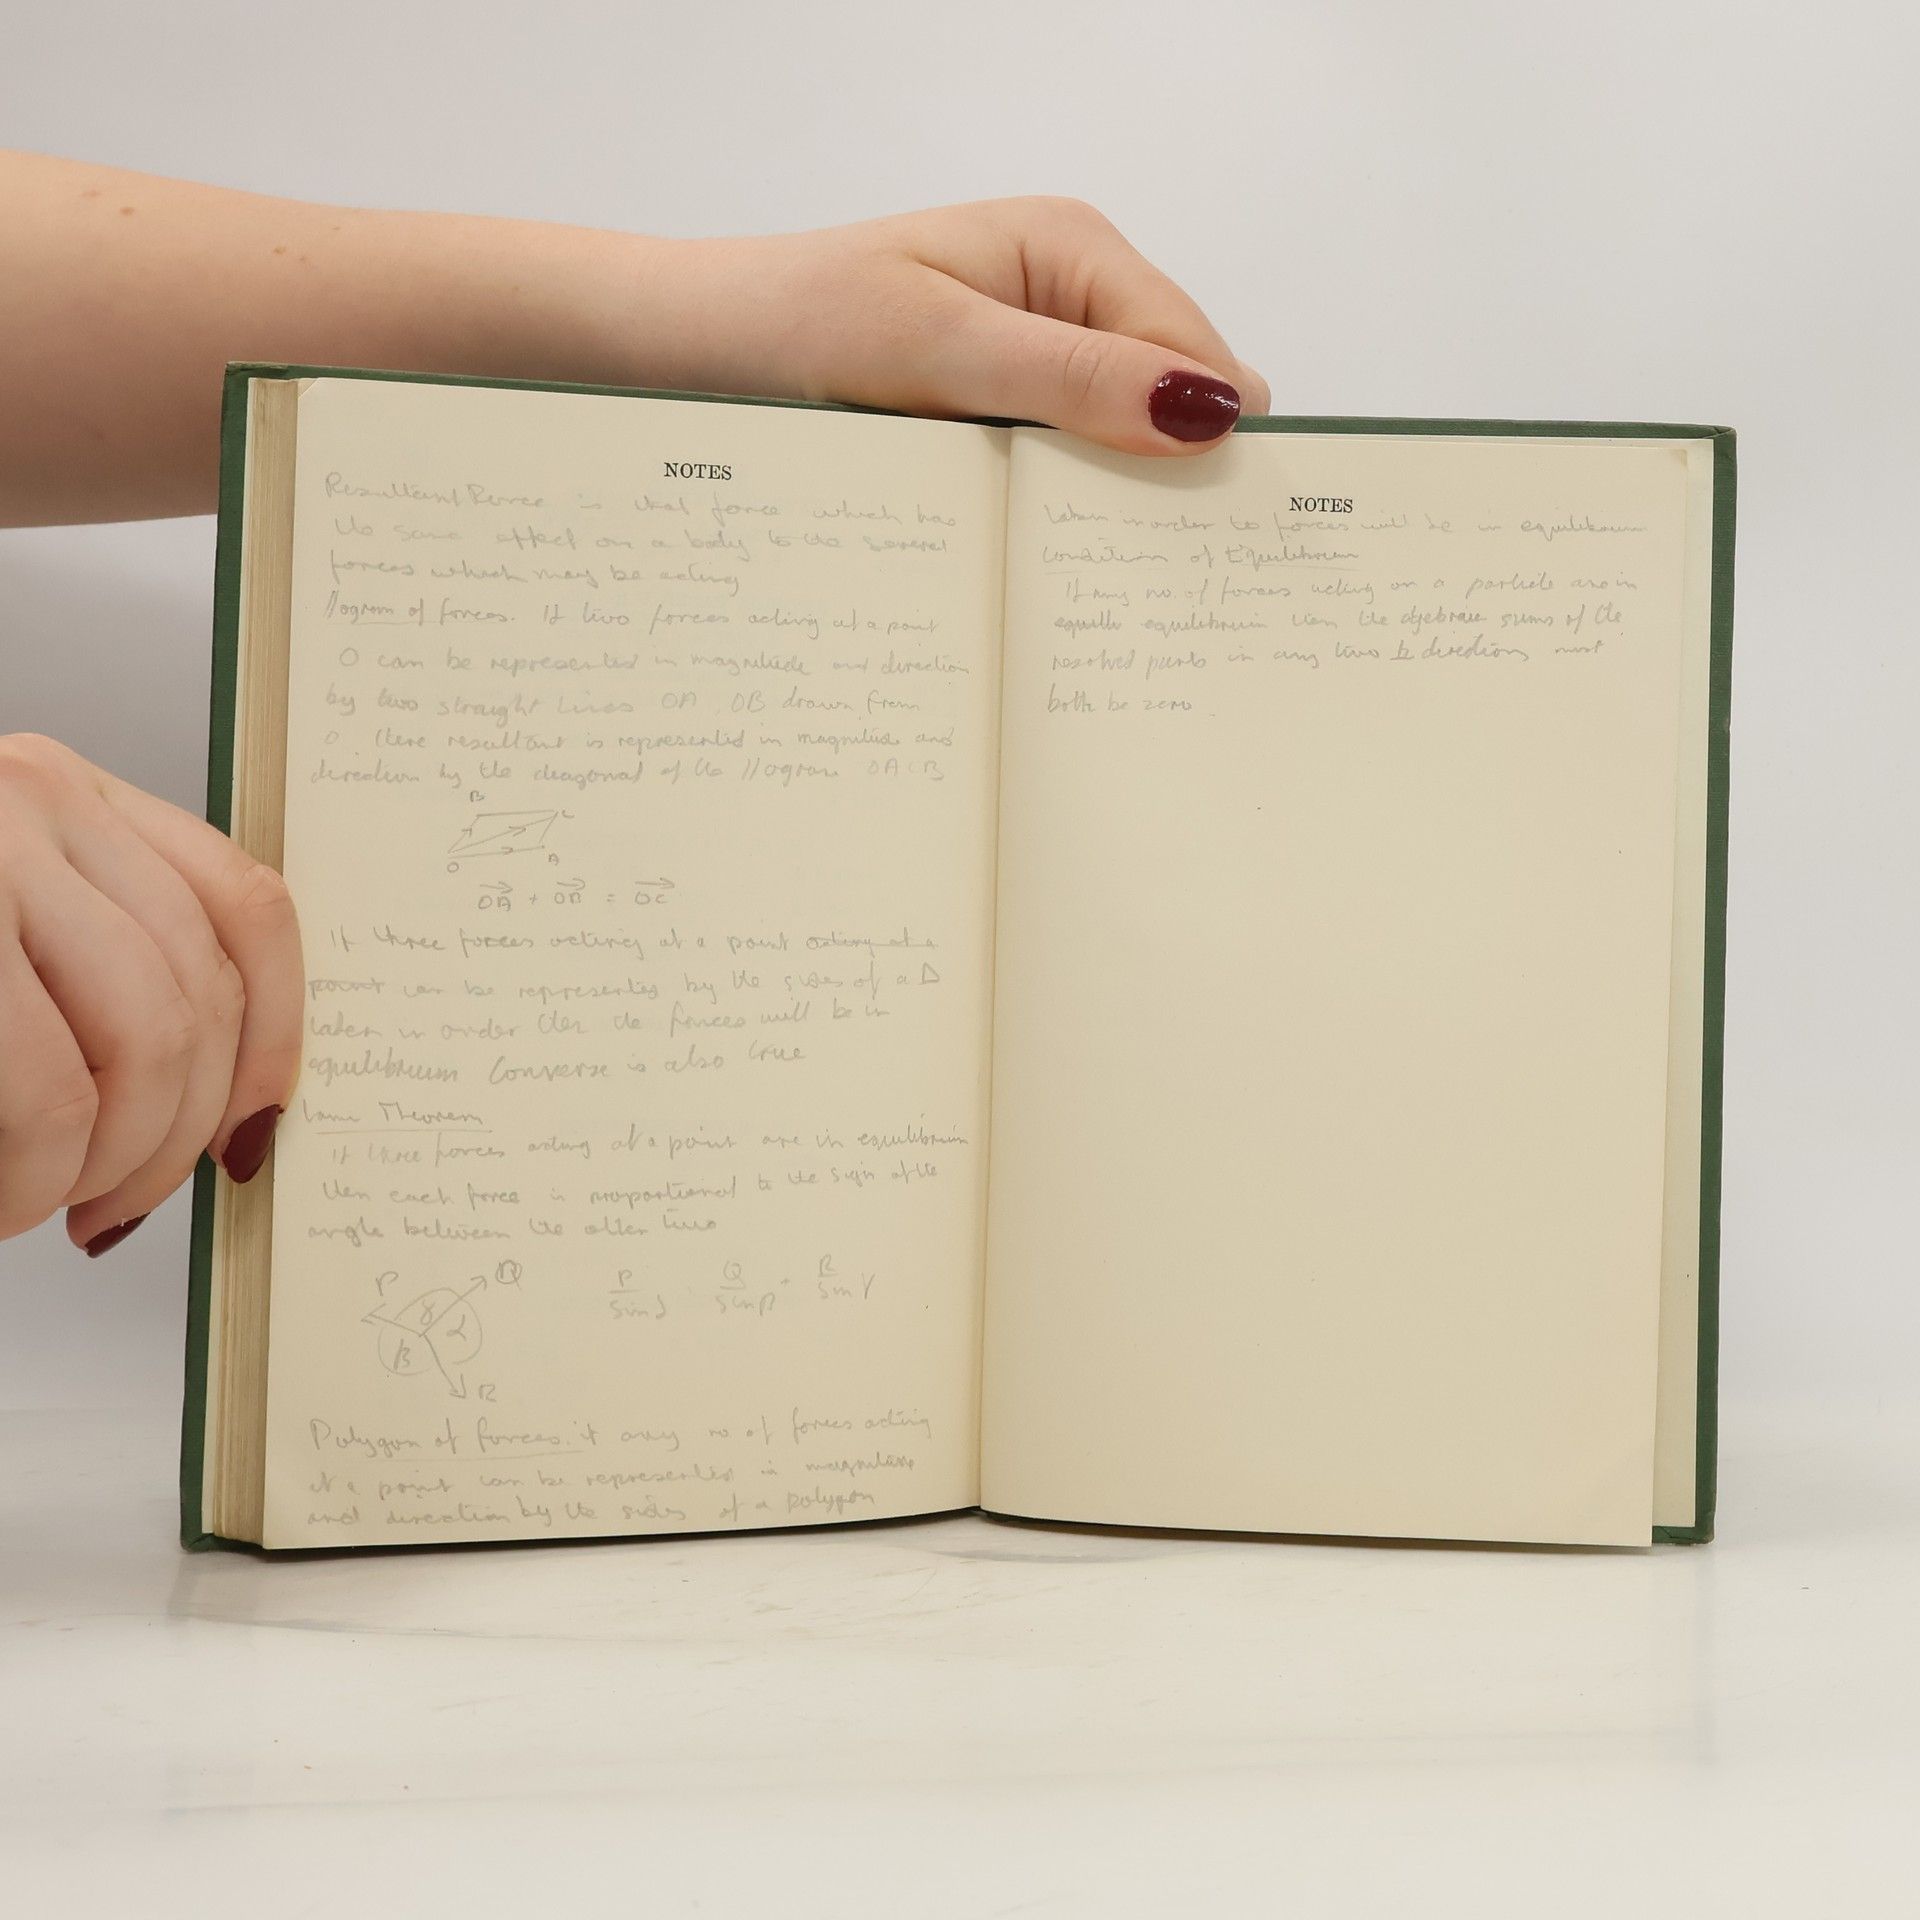 NOTES
Resultant Force is that force which has
the same effect on a body to the several
forces which may be acting
//ogram of forces. If two forces acting at a point
O can be represented in magnitude and direction
by two straight lines OA, OB drawn from
O. there resultant is represented in magnitude and
direction by the diagonal of the //ogram OACB
B C
O A
OA + OB = OC
If three forces acting at a point acting at a
point can be represented by the sides of a Δ
taken in order then the forces will be in
equilibrium Converse is also true
Lami Theorem
If three forces acting at a point are in equilibrium
then each force is proportional to the sign of the
angle between the other two
P Q
γ α
β
R
P/Sin α = Q/Sin β = R/Sin γ
Polygon of forces. if any no of forces acting
at a point can be represented in magnitude
and direction by the sides of a polygon
NOTES
taken in order to forces will be in equilibrium
Condition of Equilibrium
If any no. of forces acting on a particle are in
equilb equilibrium then the algebraic sums of the
resolved parts in any two directions must
both be zero.